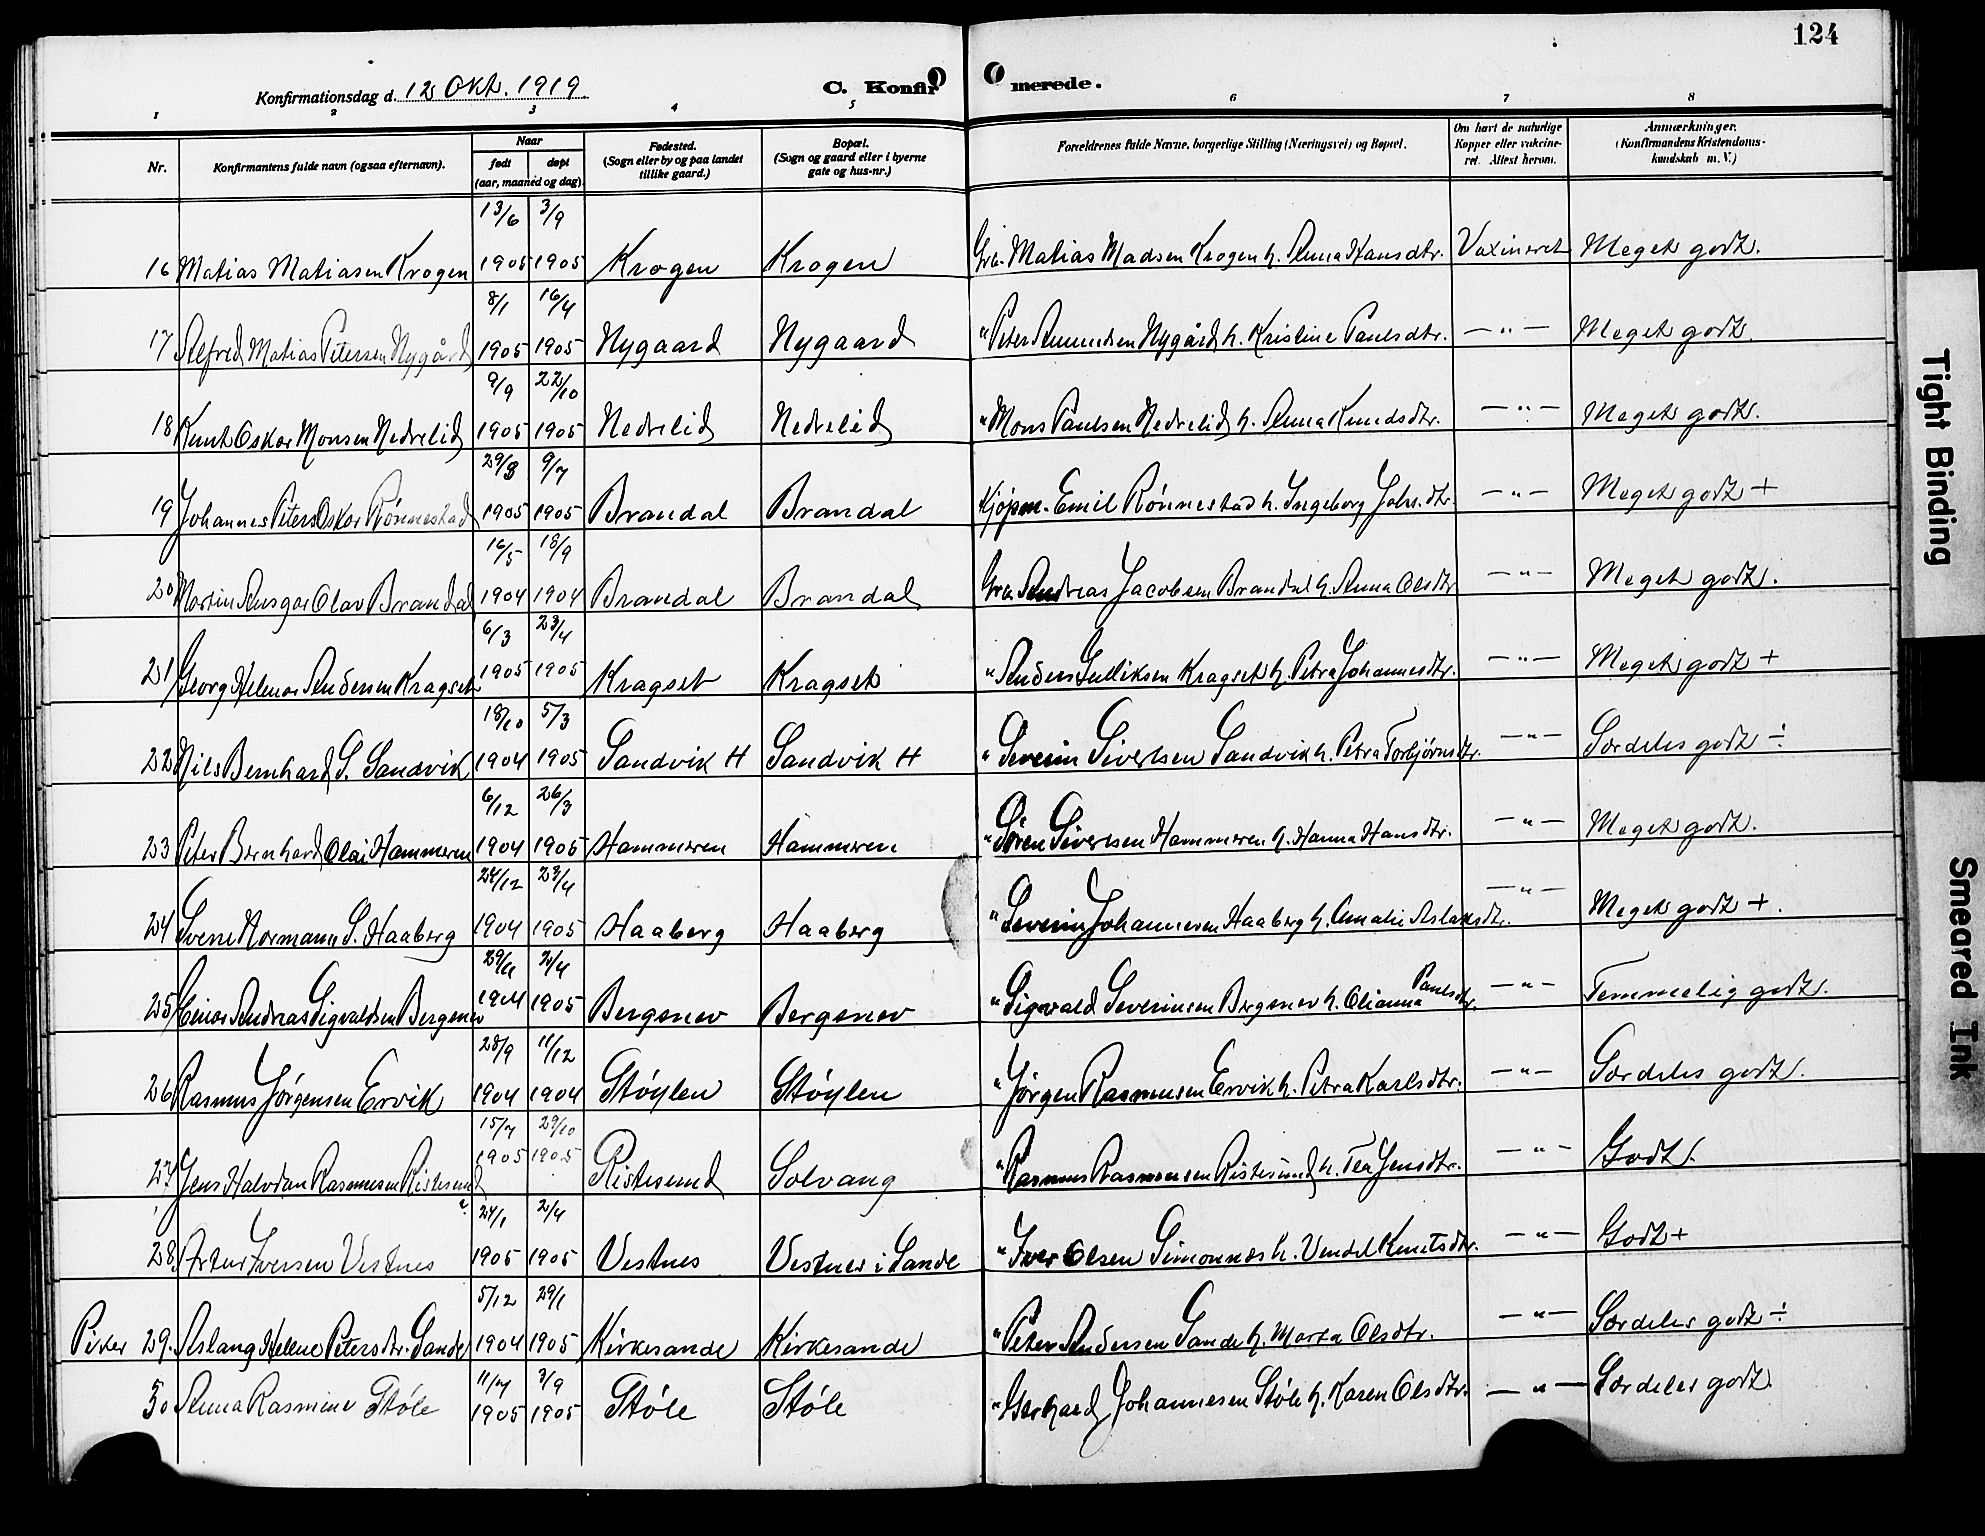 124
Konfirmationsdag d. 12 Okt. 1919. C. Konfirmerede.
1 2 3 4 5 6 7 8
Nr. Konfirmantens fulde navn (ogsaa efternavn). Naar født døpt (aar, maaned og dag) Fødested. (Sogn eller by og paa landet tillike gaard.) Bopæl. (Sogn og gaard eller i byerne gate og hus-nr.) Forældrenes fulde Navne, borgerlige Stilling (Næringsvei) og Bopæl. Om havt de naturlige Kopper eller vakcineret. Attest herom. Anmærkninger. (Konfirmandens Kristendomskundskab m. V.)
13/6 3/9
16 Matias Matiasen Krogen 1905 1905 Krogen Krogen Matias Madsen Krogen h. Anna Hansdtr. Vaxineret Meget godt.
8/1 16/4
17 Alfred Matias Petersen Nygård 1905 1905 Nygaard Nygaard " Peter Amundsen Nygård h. Kristine Paulsdtr. — " — Meget godt.
9/9 22/10
18 Knut Oskar Monsen Nedrelid 1905 1905 Nedrelid Nedrelid " Mons Paulsen Nedrelid h. Anna Knudsdtr. — " — Meget godt.
29/3 9/7
19 Johannes Peter Oskar Rønnestad 1905 1905 Brandal Brandal Kjøpm. Emil Rønnestad h. Ingeborg Johs.dtr. — " — Meget godt +
16/5 18/9
20 Martin Ansgar Olav Brandal 1904 1904 Brandal Brandal Andreas Jacobsen Brandal h. Anna Olsdtr — " — Meget godt.
6/3 23/4
21 Georg Helmer Andersen Kragset 1905 1905 Kragset Kragset " Anders Gulliksen Kragset h. Petra Johannesdtr. — " — Meget godt +
18/10 5/3
22 Nils Bernhard S. Sandvik 1904 1905 Sandvik H Sandvik H " Severin Sivertsen Sandvik h. Petra Torbjørnsdtr. — " — Særdeles godt ÷
6/12 26/3
23 Peter Bernhard Olai Hammeren 1904 1905 Hammeren Hammeren " Søren Sivertsen Hammeren h. Hanna Hansdtr. — " — Meget godt.
24/12 23/4
24 Sverre Normann S. Haaberg 1904 1905 Haaberg Haaberg " Severin Johannesen Haaberg h. Amalie Aslaksdtr. — " — Meget godt +.
29/11 2/4
25 Einar Andreas Sigvaldsen Bergsnev 1904 1905 Bergsnev Bergsnev " Sigvald Severinsen Bergsnev h. Olianna Paulsdtr. — " — Temmelig godt.
28/9 11/12
26 Rasmus Jørgensen Ervik 1904 1904 Støylen Støylen " Jørgen Rasmussen Ervik h. Petra Karlsdtr. — " — Særdeles godt.
15/7 29/10
27 Jens Halvdan Rasmussen Ristesund 1905 1905 Ristesund Solvang " Rasmus Rasmussen Ristesund h. Tea Jensdtr. — " — Godt.
24/1 2/4
28 Artur Iversen Vestnes 1905 1905 Vestnes Vestnes i Sande " Iver Olsen Simonnæs h. Vendel Knutsdtr. — " — Godt +
5/12 29/1
Piker 29. Aslaug Helene Petersdtr. Sande 1904 1905 Kirkesande Kirkesande " Peter Andersen Sande h. Marta Olsdtr. — " — Særdeles godt ÷
11/7 3/9
30 Anna Rasmine Støle 1905 1905 Støle Støle " Gerhard Johannesen Støle h. Karen Olsdtr. — " — Særdeles godt.
Tight Binding
Smeared Ink